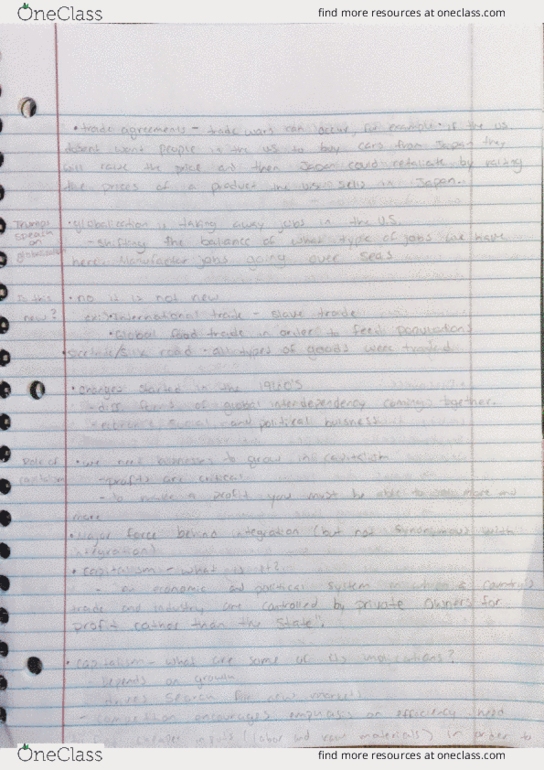 OneClass
find more resources at oneclass.com
• trade agreements - trade wars can occur, for example if the US
doesnt want people in the US to buy cars from Japan they
will raise the price and then Japan could retaliate by raising
the prices of a product the US sells in Japan.
Trumps speach on globalization
• globalization is taking away jobs in the US
- shifting the balance of what type of jobs we have
here. Manufactor jobs going over seas
Is this new?
• no it is not new
ex: • International trade - slave trade
• Global food trade in order to feed populations
road - all types of goods were traded
• changes started in the 1970's
- diff forms of global interdependency comings together.
social and political business
Role of capitalism
• we need businesses to grow in capitalism
- profits are critical
- to make a profit you must be able to more and
more
• Major force behind integration (but not synonymous with
integration)
• capitalism - what is it?
- "an economic and political system in which a country's
trade and industry are controlled by private owners for
profit rather than the state".
• capitalism - what are some of its implications?
- depends on growth
- drives search for new markets
- competition encourages emphasis on efficiency, need
cheaper inputs (labor and raw materials) in order to
OneClass
find more resources at oneclass.com